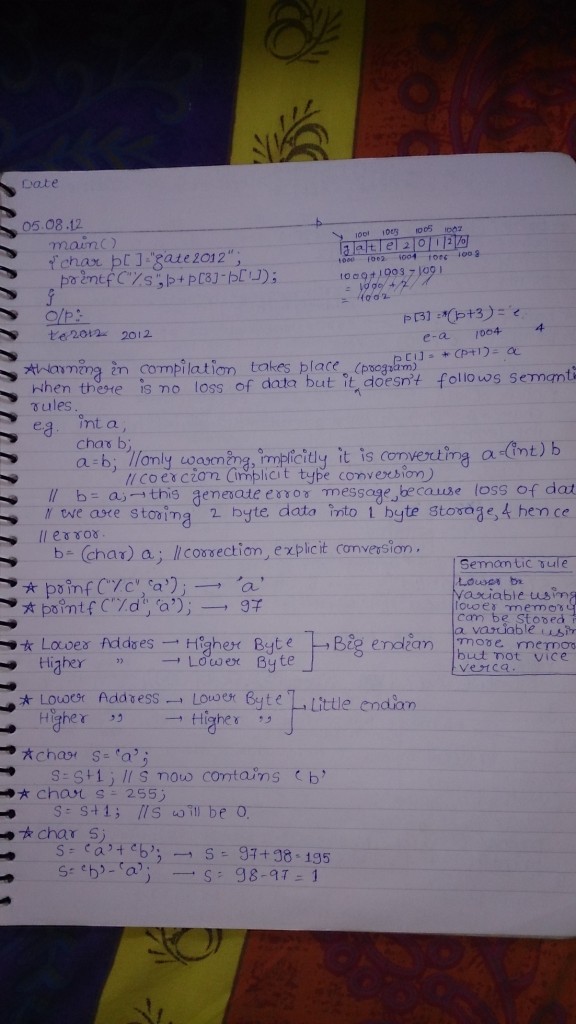 Date
05.08.12
main()
{ char p[ ]="gate2012";
printf("%s", p+p[3]-p[1]);
}
O/p:
te2012 2012
p
1001 1003 1005 1007
g a t e 2 0 1 2 \0
1000 1002 1004 1006 1008
1000+1003-1001
= 1000+2
= 1002
p[3] = *(p+3) = 'e
e-a 1004 4
p[1] = *(p+1) = a
*Warning in compilation takes place (program)
when there is no loss of data but it doesn't follows semanti
rules.
e.g. int a,
char b;
a=b; //only warning, implicitly it is converting a=(int) b
// coercion (implicit type conversion)
// b = a, → this generate error message, because loss of dat
// we are storing 2 byte data into 1 byte storage, & hence
// error.
b= (char) a; // correction, explicit conversion.
* prinf("%c", 'a'); → 'a'
* printf("%d", 'a'); → 97
Semantic rule
Lower
variable using
lower memory
can be stored i
a variable usin
more memor
but not vice
verca.
* Lower Addres → Higher Byte
Higher " → Lower Byte
→ Big endian
* Lower Address → Lower Byte
Higher " → Higher "
→ Little endian
* char s= 'a';
s= s+1 ; // s now contains 'b'
* char s = 255;
s= s+1; // s will be 0.
* char s;
s= 'a'+'b'; → s = 97+98=195
s= 'b'-'a'; → s= 98-97 = 1